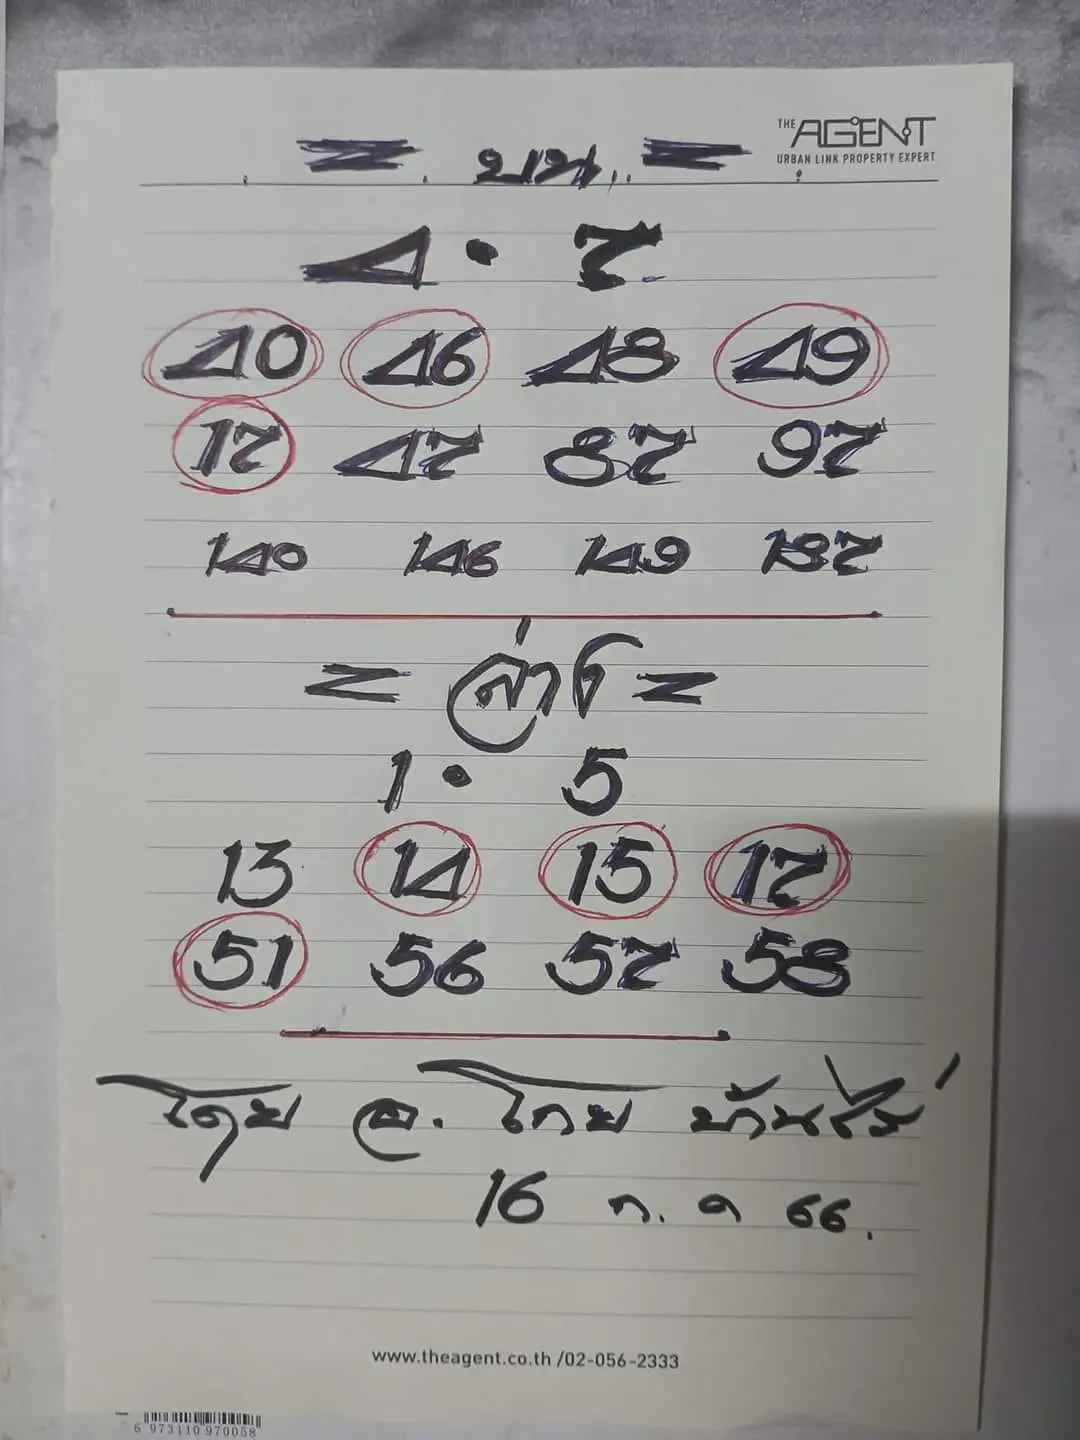 THE AGENT
URBAN LINK PROPERTY EXPERT
= บน =
4 • 7
40 46 48 49
17 47 87 97
140 146 149 187
= ล่าง =
1 • 5
13 14 15 17
51 56 57 58
โดย อ. โกย บ้านไร่
16 ก.ค 66.
www.theagent.co.th /02-056-2333
6 973110 970058